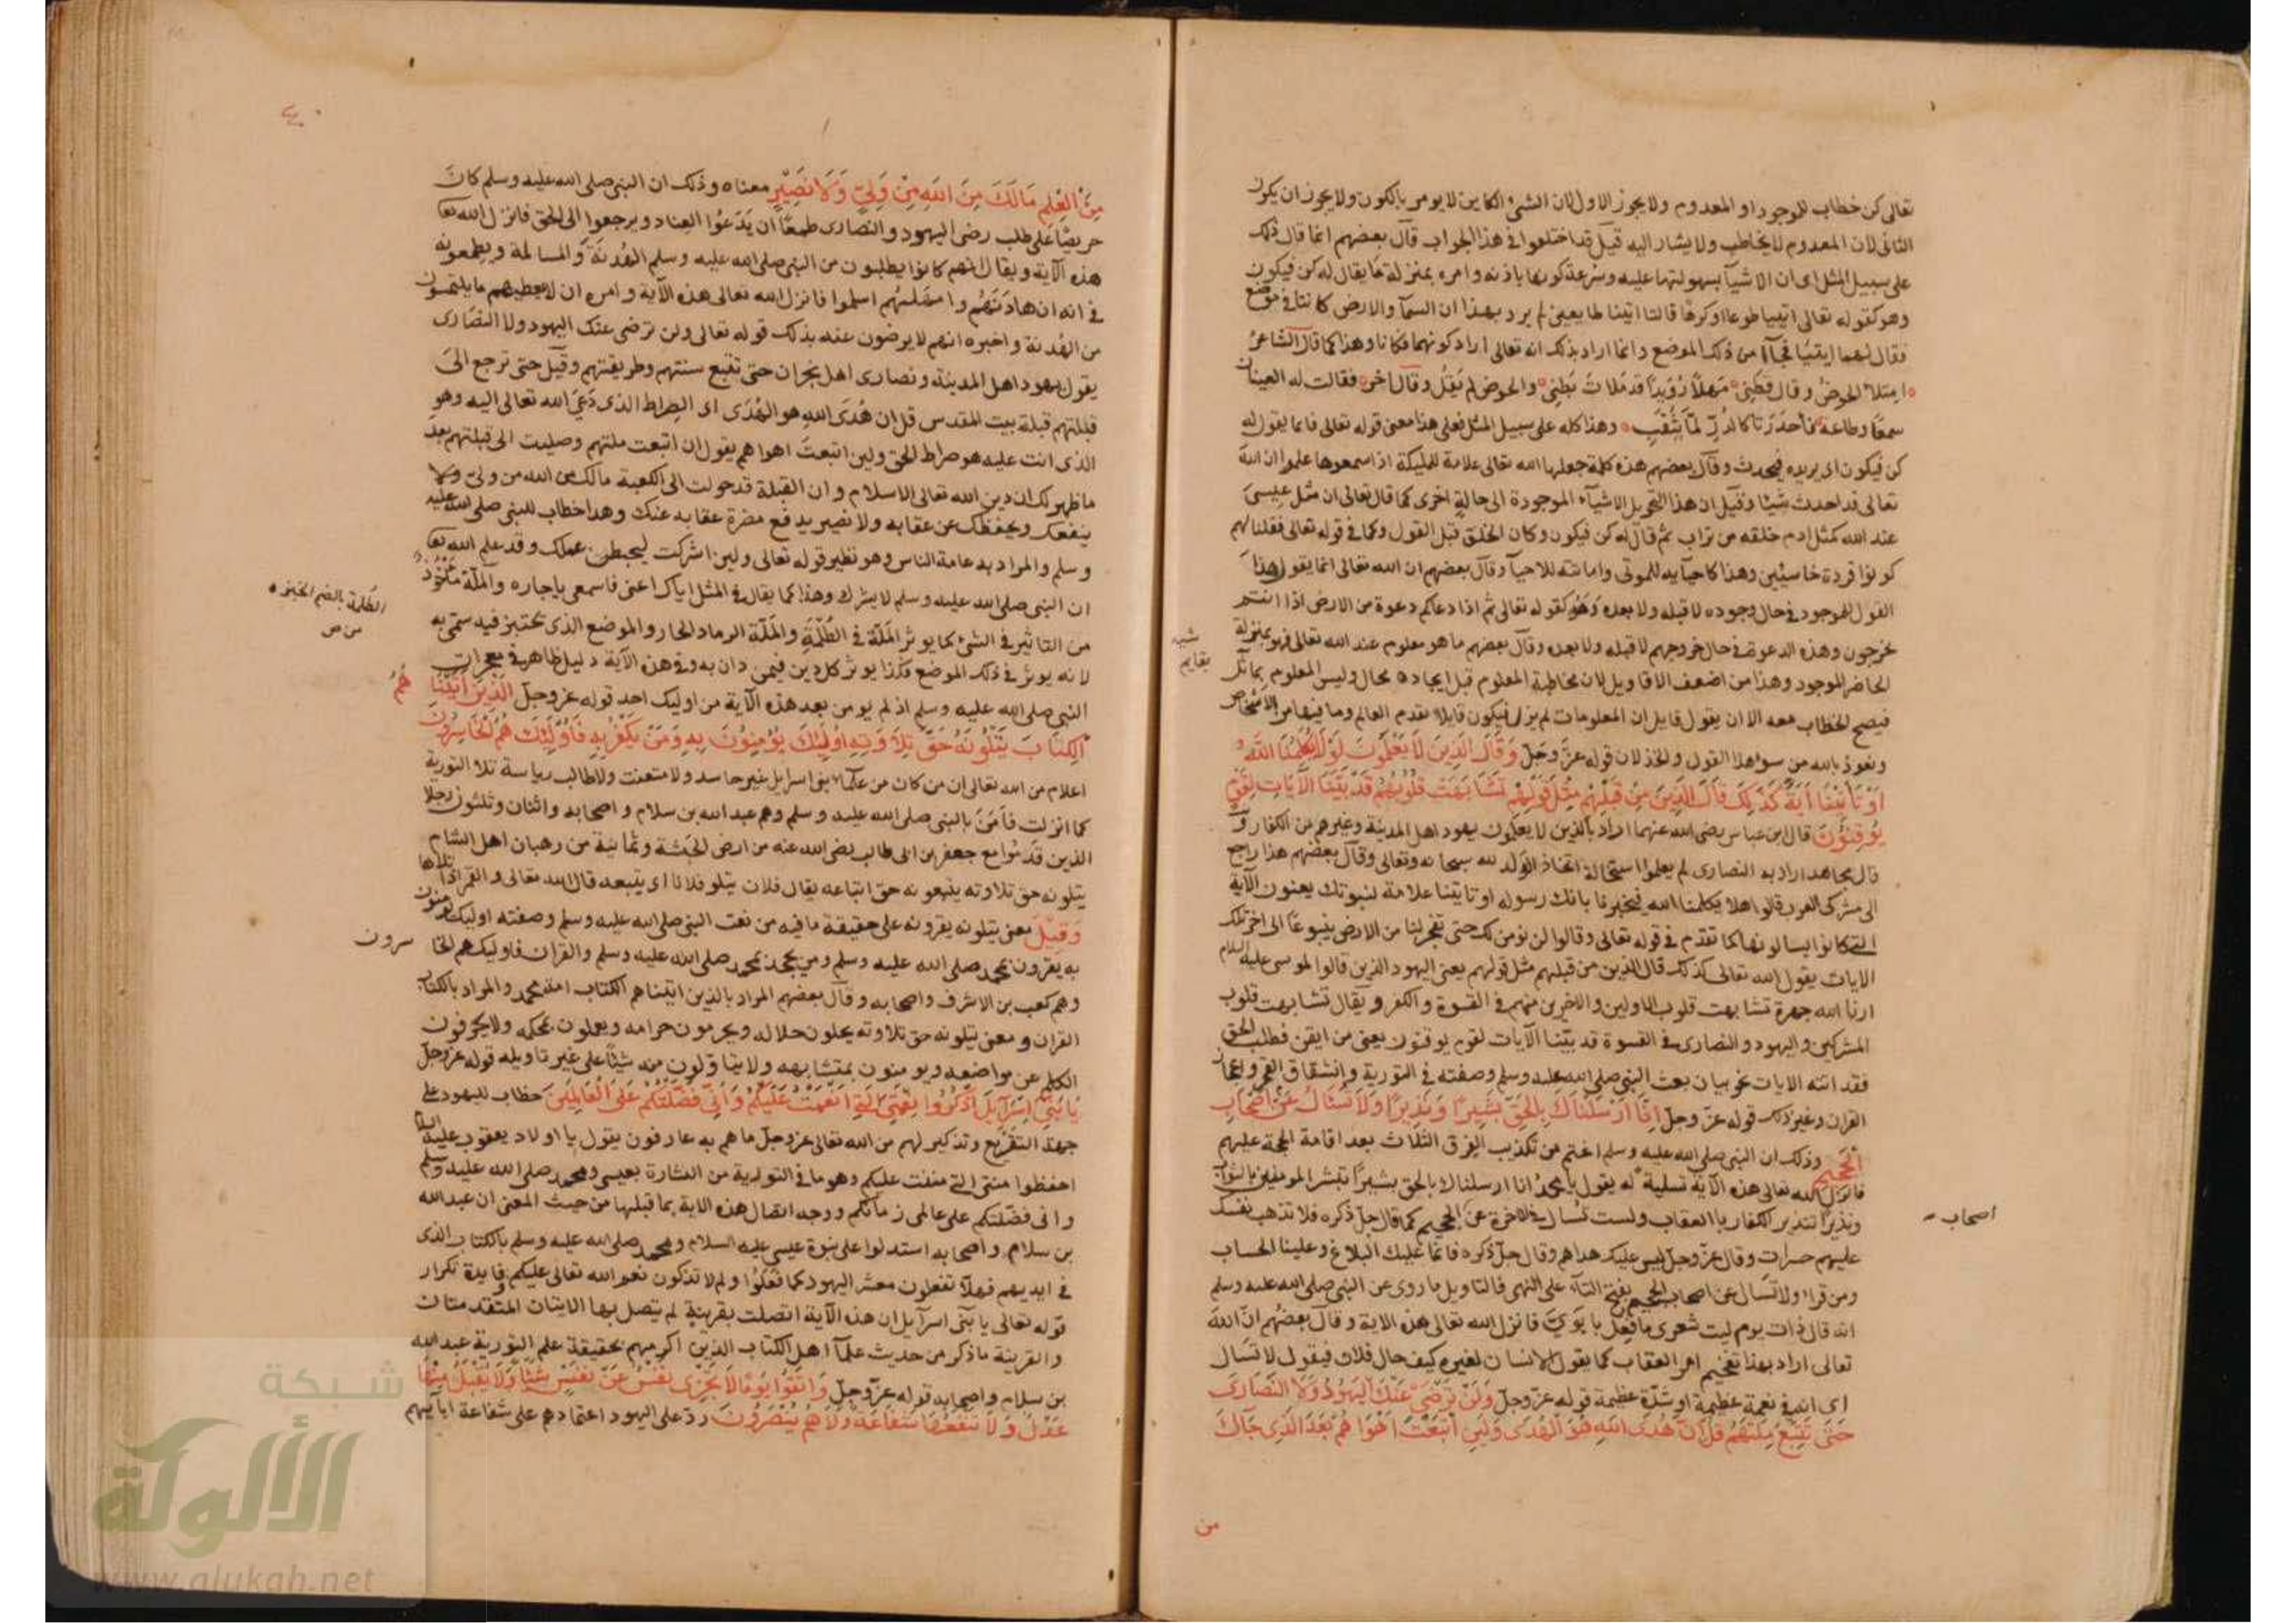 تعالى كن خطاب للموجود او المعدوم ولا يجوز الاول لان الشئ الكاين لا يومر بالكون ولا يجوز ان يكون
الثانى لان المعدوم لا يخاطب ولا يشار اليه قيل قد اختلفوا فى هذا الجواب قال بعضهم انما قال ذلك
على سبيل المثل اى ان الاشيآ بسهولتها عليه وسرعة كونها باذنه وامره بمنزلة ما يقال له كن فيكون
وهو كقوله تعالى ائتيا طوعا او كرها قالتا اتينا طايعين لم يرد بهذا ان السمآ والارض كانتا فى موضع
فقال لهما ايتيا فجآا من ذلك الموضع وانما اراد بذلك انه تعالى اراد كونهما فكانا وهذا كما قال الشاعر
امتلا الحوض وقال قطنى مهلا رويدا قد ملات بطنى والحوض لم يقل وقال اخر فقالت له العينان
سمعا وطاعة وحدرتا كالدر لما يثقب وهذا كله على سبيل المثل فعلى هذا معنى قوله تعالى فانما يقول له
كن فيكون اى يريده فيحدث وقال بعضهم هذه كلمة جعلها الله تعالى علامة للمليكة اذا سمعوها علموا ان الله
تعالى قد احدث شيئا وقيل ان هذا التحويل الاشيآء الموجودة الى حالة اخرى كما قال تعالى ان مثل عيسى
عند الله كمثل ادم خلقه من تراب ثم قال له كن فيكون وكان الخلق قبل القول وكما فى قوله تعالى فقلنا لهم
كونوا قردة خاسئين وهذا كاحيآيه للموتى واماتته للاحيآ وقال بعضهم ان الله تعالى انما يقول هذا
القول للموجود فى حال وجوده لا قبله ولا بعده وهو كقوله تعالى ثم اذا دعاكم دعوة من الارض اذا انتم
تخرجون وهذه الدعوة فى حال خروجهم لا قبله ولا بعده وقال بعضهم ما هو معلوم عند الله تعالى فهو بمنزلة
الحاضر الموجود وهذا من اضعف الاقاويل لان مخاطبة المعلوم قبل ايجاده محال وليس المعلوم بماثل
فيصح الخطاب معه الا ان يقول قايل ان المعلومات لم يزل فيكون قايلا بقدم العالم وما فيها من الاشخاص
ونعوذ بالله من سوا هذا القول والخذلان قوله عز وجل وقال الذين لا يعلمون لولا يكلمنا الله
او تاتينا اية كذلك قال الذين من قبلهم مثل قولهم تشابهت قلوبهم قد بينا الآيات لقوم
يوقنون قال ابن عباس رضى الله عنهما اراد بالذين لا يعلمون يهود اهل المدينة وغيرهم من الكفار و
قال مجاهد اراد به النصارى لم يعلموا استحالة اتخاذ الولد لله سبحانه وتعالى وقال بعضهم هذا راجع
الى مشركى العرب قالوا هلا يكلمنا الله فيخبرنا بانك رسوله او تاتينا علامة لنبوتك يعنون الآية
التى كانوا يسالونها كما تقدم فى قوله تعالى وقالوا لن نومن لك حتى تفجر لنا من الارض ينبوعا الى اخر تلك
الايات يقول الله تعالى كذلك قال الذين من قبلهم مثل قولهم يعنى اليهود الذين قالوا لموسى عليه السلام
ارنا الله جهرة تشابهت قلوب الاولين والاخرين منهم فى القسوة والكفر ويقال تشابهت قلوب
المشركين واليهود والنصارى فى القسوة قد بينا الآيات لقوم يوقنون يعنى من ايقن فطلب الحق
فقد اتته الايات نحو بيان بعث النبى صلى الله عليه وسلم وصفته فى التورية وانشقاق القمر واعجاز
القران وغير ذلك قوله عز وجل انا ارسلناك بالحق بشيرا ونذيرا ولا تسئل عن اصحاب
الجحيم وذلك ان النبى صلى الله عليه وسلم اغتم من تكذيب الفرق الثلاث بعد اقامة الحجة عليهم
فانزل الله تعالى هذه الآية تسلية له يقول يا محمد انا ارسلناك بالحق بشيرا تبشر المومنين بالثواب
ونذيرا تنذير الكفار بالعقاب ولست تسال فى الاخرة عن الجحيم كما قال جل ذكره فلا تذهب نفسك
عليهم حسرات وقال عز وجل ليس عليك هداهم وقال جل ذكره فانما عليك البلاغ وعلينا الحساب
ومن قرا ولا تسال عن اصحاب الجحيم بفتح التآء على النهى فالتاويل ما روى عن النبى صلى الله عليه وسلم
انه قال ذات يوم ليت شعرى ما فعل بابوى فانزل الله تعالى هذه الاية وقال بعضهم ان الله
تعالى اراد بهذا تفخيم امر العقاب كما يقول الانسان لغيره كيف حال فلان فيقول لا تسال
اى انه فى نعمة عظيمة او شدة عظيمة قوله عز وجل ولن ترضى عنك اليهود ولا النصارى
حتى تتبع ملتهم قل ان هدى الله هو الهدى ولين اتبعت اهواهم بعد الذى جآك
شبه
بقايم
اصحاب
من
من العلم مالك من الله من ولى ولا نصير معناه وذلك ان النبى صلى الله عليه وسلم كان
حريصا على طلب رضى اليهود والنصارى طمعا ان يدعوا العناد ويرجعوا الى الحق فانزل الله تعا
هذه الآية ويقال انهم كانوا يطلبون من النبى صلى الله عليه وسلم الهدنة والمسالمة ويطمعونه
فى انه ان هادنهم وامهلهم اسلموا فانزل الله تعالى هذه الآية وامره ان لا يعطيهم ما يلتمسون
من الهدنة واخبره انهم لا يرضون عنه بذلك قوله تعالى ولن ترضى عنك اليهود ولا النصارى
يقول يهود اهل المدينة ونصارى اهل نجران حتى تتبع سنتهم وطريقتهم وقيل حتى ترجع الى
قبلتهم قبلة بيت المقدس قل ان هدى الله هو الهدى اى الصراط الذى دعى الله تعالى اليه وهو
الذى انت عليه هو صراط الحق ولين اتبعت اهواهم يقول ان اتبعت ملتهم وصليت الى قبلتهم بعد
ما ظهر لك ان دين الله تعالى الاسلام وان القبلة قد حولت الى الكعبة مالك من الله من ولى ولا
ينفعك ويحفظك عن عقابه ولا نصير يدفع مضرة عقابه عنك وهذا خطاب للنبى صلى الله عليه
وسلم والمراد به عامة الناس وهو نظير قوله تعالى ولين اشركت ليحبطن عملك وقد علم الله تعا
ان النبى صلى الله عليه وسلم لا يشرك وهذا كما يقال فى المثل اياك اعنى فاسمعى ياجاره والملة ماخوذ
من التاثير فى الشئ كما يوثر الملة فى الطلمة والملة الرماد الحار والموضع الذى تختبز فيه سمى به
لانه يوثر فى ذلك الموضع فكذا يوثر كل دين فيمن دان به وفى هذه الآية دليل ظاهر فى معجزات
النبى صلى الله عليه وسلم اذ لم يومن بعد هذه الآية من اوليك احد قوله عز وجل الذين اتينا هم
الكتاب يتلونه حق تلاوته اوليك يومنون به ومن يكفر به فاوليك هم الخاسرون
اعلام من الله تعالى ان من كان من علمآء بنى اسرايل غير حاسد ولا متعنت ولا طالب رياسة تلا التورية
كما انزلت فامن بالنبى صلى الله عليه وسلم وهم عبد الله بن سلام واصحابه واثنان وثلثون رجلا
الذين قدموا مع جعفر بن ابى طالب رضى الله عنه من ارض الحبشة وثمانية من رهبان اهل الشام
يتلونه حق تلاوته يتبعونه حق اتباعه يقال فلان يتلو فلانا اى يتبعه قال الله تعالى والقمر اذا تلاها
وقيل معنى يتلونه يقرونه على حقيقة ما فيه من نعت النبى صلى الله عليه وسلم وصفته اوليك يومنون
به يقرون بمحمد صلى الله عليه وسلم ومن يجحد بمحمد صلى الله عليه وسلم والقران فاوليك هم الخا سرون
وهم كعب بن الاشرف واصحابه وقال بعضهم المراد بالذين اتيناهم الكتاب امة محمد والمراد بالكتاب
القران ومعنى يتلونه حق تلاوته يحلون حلاله ويحرمون حرامه ويعملون بمحكمه ولا يحرفون
الكلم عن مواضعه ويومنون بمتشابهه ولا يتاولون منه شيئا على غير تاويله قوله عز وجل
يا بنى اسرآيل اذكروا نعمتى التى انعمت عليكم وانى فضلتكم على العالمين خطاب لليهود على
جهة التقريع وتذكير لهم من الله تعالى عز وجل ما هم به عارفون يقول يا اولاد يعقوب عليه السلام
احفظوا منتى التى مننت عليكم وهو ما فى التورية من البشارة بعيسى ومحمد صلى الله عليه وسلم
وانى فضلتكم على عالمى زمانكم ووجه اتصال هذه الاية بما قبلها من حيث المعنى ان عبد الله
بن سلام واصحابه استدلوا على نبوة عيسى عليه السلام ومحمد صلى الله عليه وسلم بالكتاب الذى
فى ايديهم فهلا تفعلون معشر اليهود كما فعلوا ولم لا تذكرون نعم الله تعالى عليكم وفايدة تكرار
قوله تعالى يا بنى اسرآيل ان هذه الآية اتصلت بقرينة لم يتصل بها الايتان المتقدمتان
والقرينة ما ذكر من حديث علمآ اهل الكتاب الذين اكرمهم بحقيقة علم التورية عبد الله
بن سلام واصحابه قوله عز وجل واتقوا يوما لا تجزى نفس عن نفس شيئا ولا يقبل منها
عدل ولا تنفعها شفاعة ولا هم ينصرون رد على اليهود اعتمادهم على شفاعة ابآئهم
الطلمة بالضم الخبزه
من ص
شبكة
الألوكة
www.alukah.net